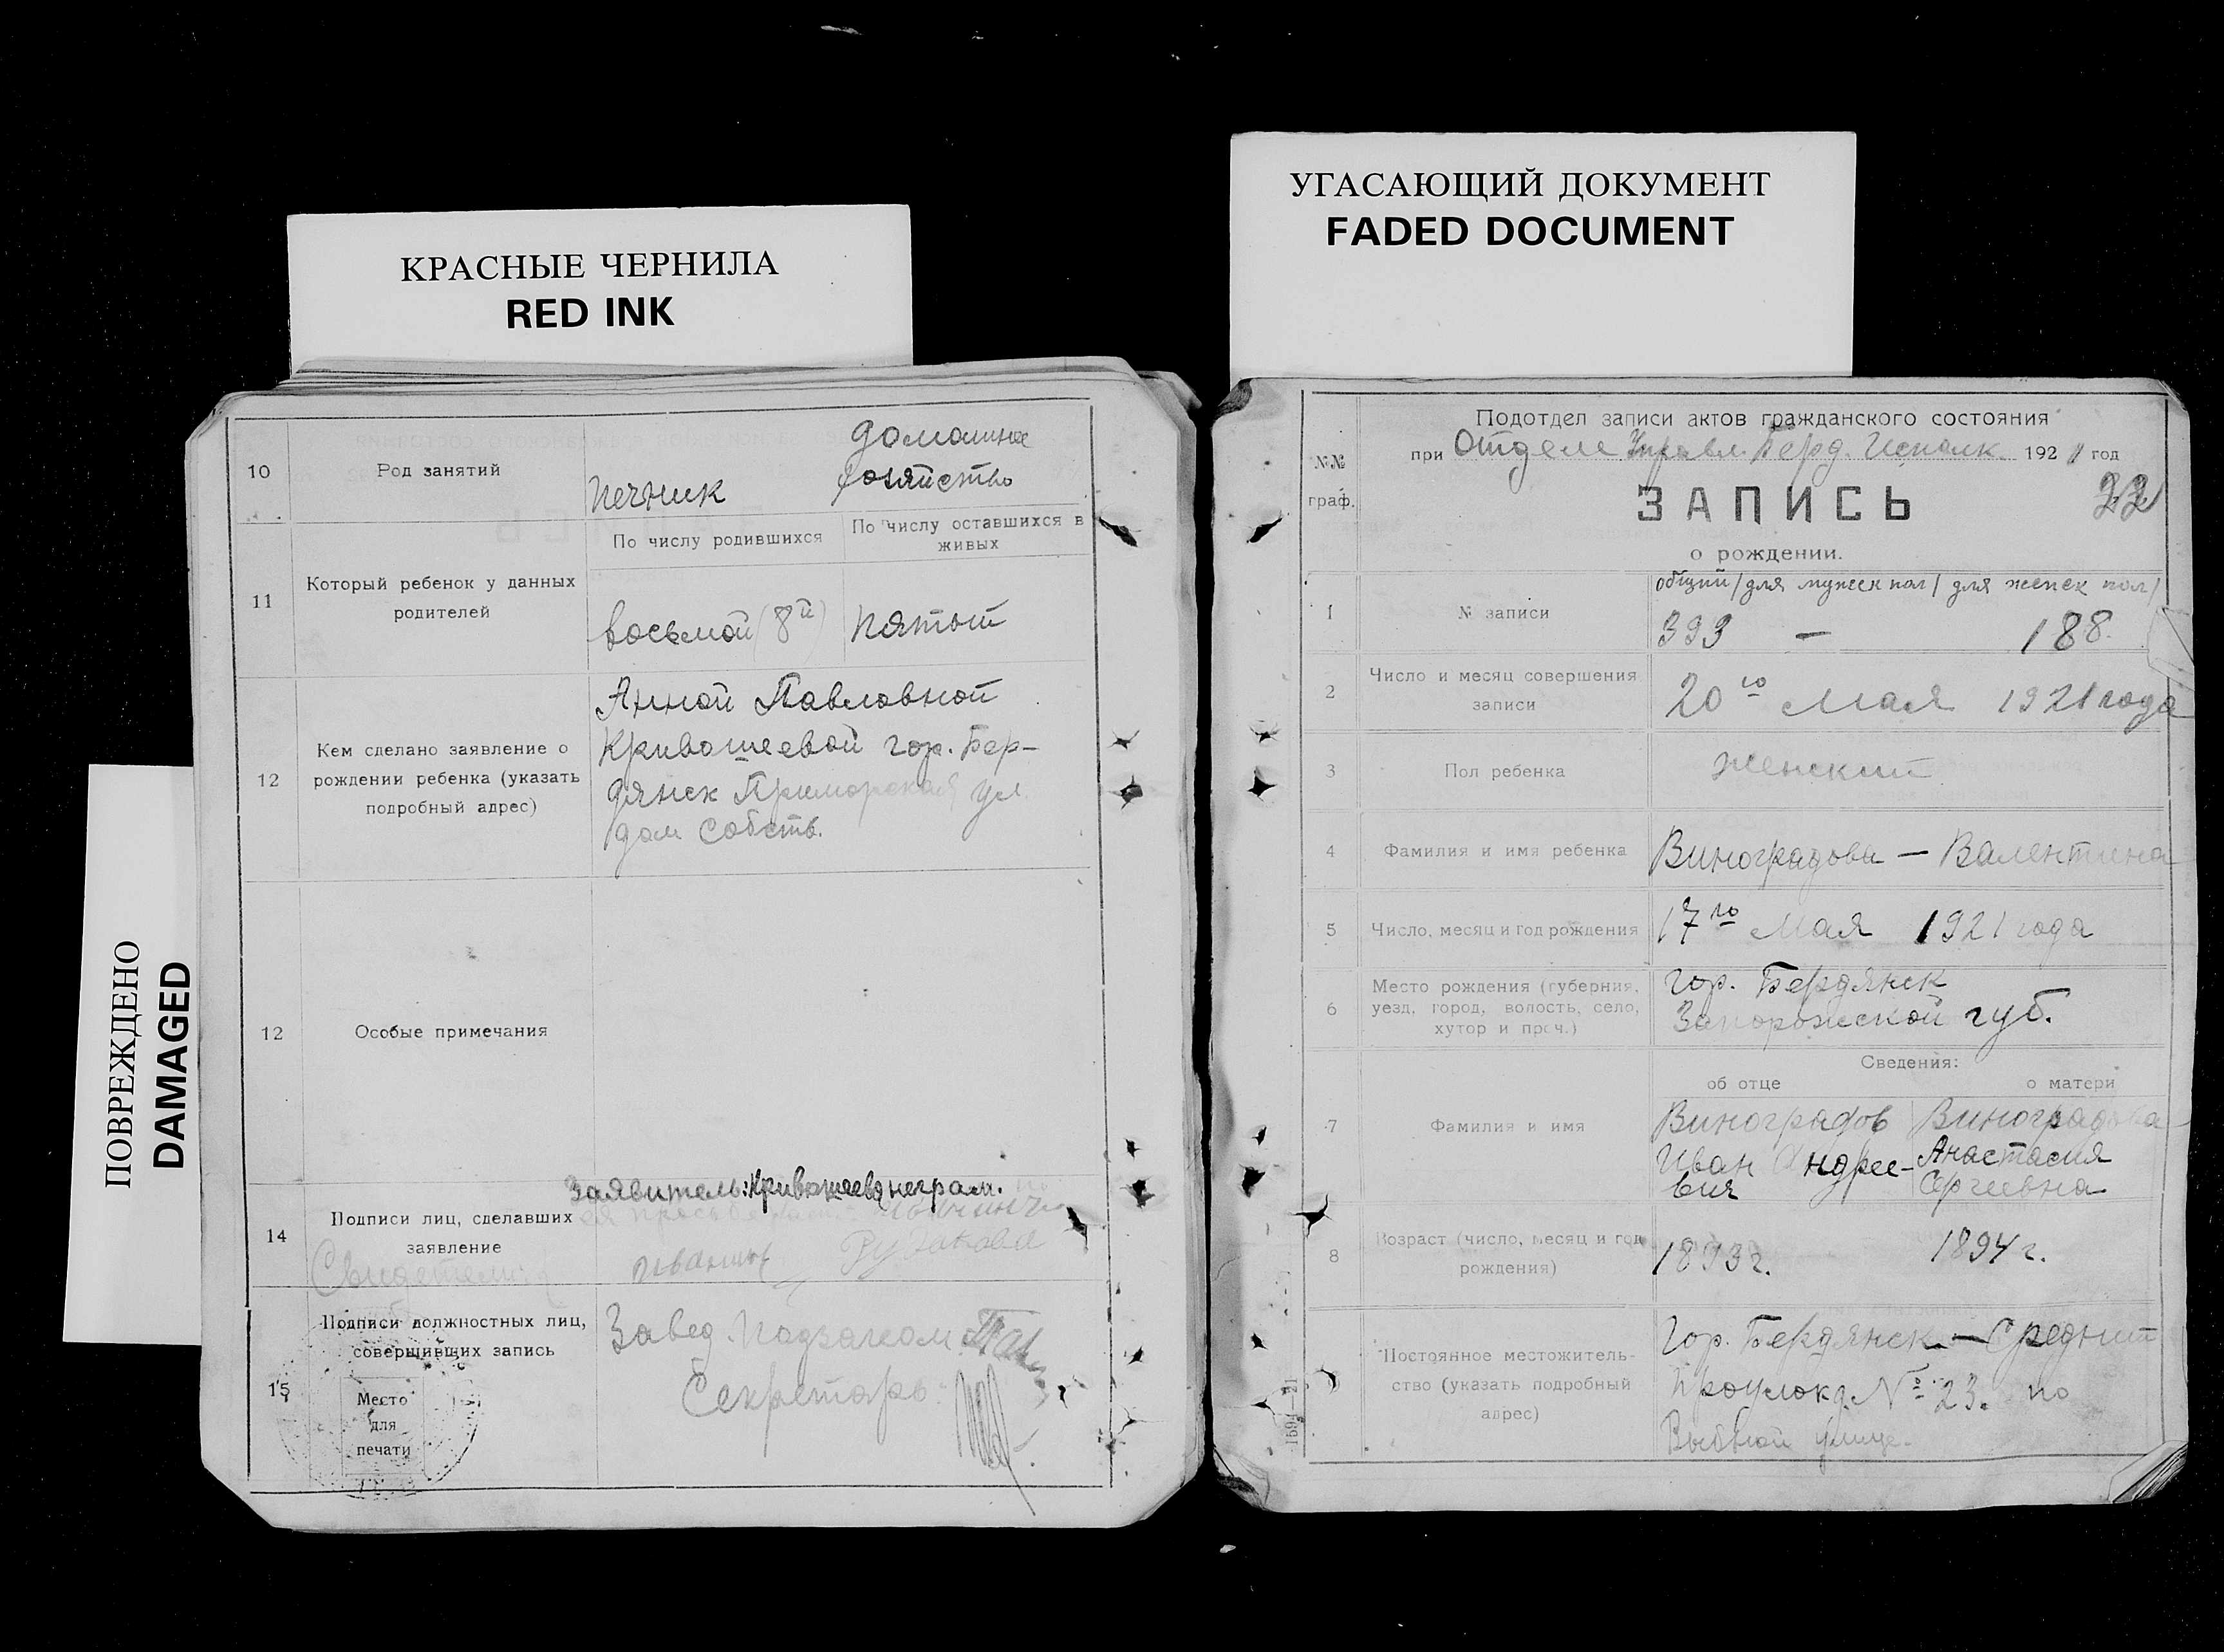 КРАСНЫЕ ЧЕРНИЛА
RED INK
УГАСАЮЩИЙ ДОКУМЕНТ
FADED DOCUMENT
ПОВРЕЖДЕНО
DAMAGED
10
Род занятий
печник
домашнее
хозяйство
11
Который ребенок у данных
родителей
По числу родившихся
По числу оставшихся в
живых
восьмой (8й)
пятый
12
Кем сделано заявление о
рождении ребенка (указать
подробный адрес)
Анной Павловной
Кривошеевой гор. Бер-
дянск Приморская ул.
дом собств.
12
Особые примечания
Заявитель: Кривошеева неграм.
14
Подписи лиц, сделавших
заявление
Свидетели:
15
Подписи должностных лиц,
совершивших запись
Место
для
печати
Завед.
Секретарь
Подотдел записи актов гражданского состояния
при Отделе Управл. Берд. Исполк. 1921 год
№№
граф.
ЗАПИСЬ
22
о рождении.
1
№ записи
общий / для мужск пол / для женск пол /
393 — 188.
2
Число и месяц совершения
записи
20го Мая 1921 года
3
Пол ребенка
женский
4
Фамилия и имя ребенка
Виноградова — Валентина
5
Число, месяц и год рождения
17го Мая 1921 года
6
Место рождения (губерния,
уезд, город, волость, село,
хутор и проч.)
гор. Бердянск
Запорожской губ.
Сведения:
об отце
о матери
7
Фамилия и имя
Виноградов
Иван Андрее-
вич
Виноградова
Анастасия
Сергеевна
8
Возраст (число, месяц и год
рождения)
1893 г.
1894 г.
Постоянное местожитель-
ство (указать подробный
адрес)
гор. Бердянск — Средний
проулок д. № 23. по
улице.